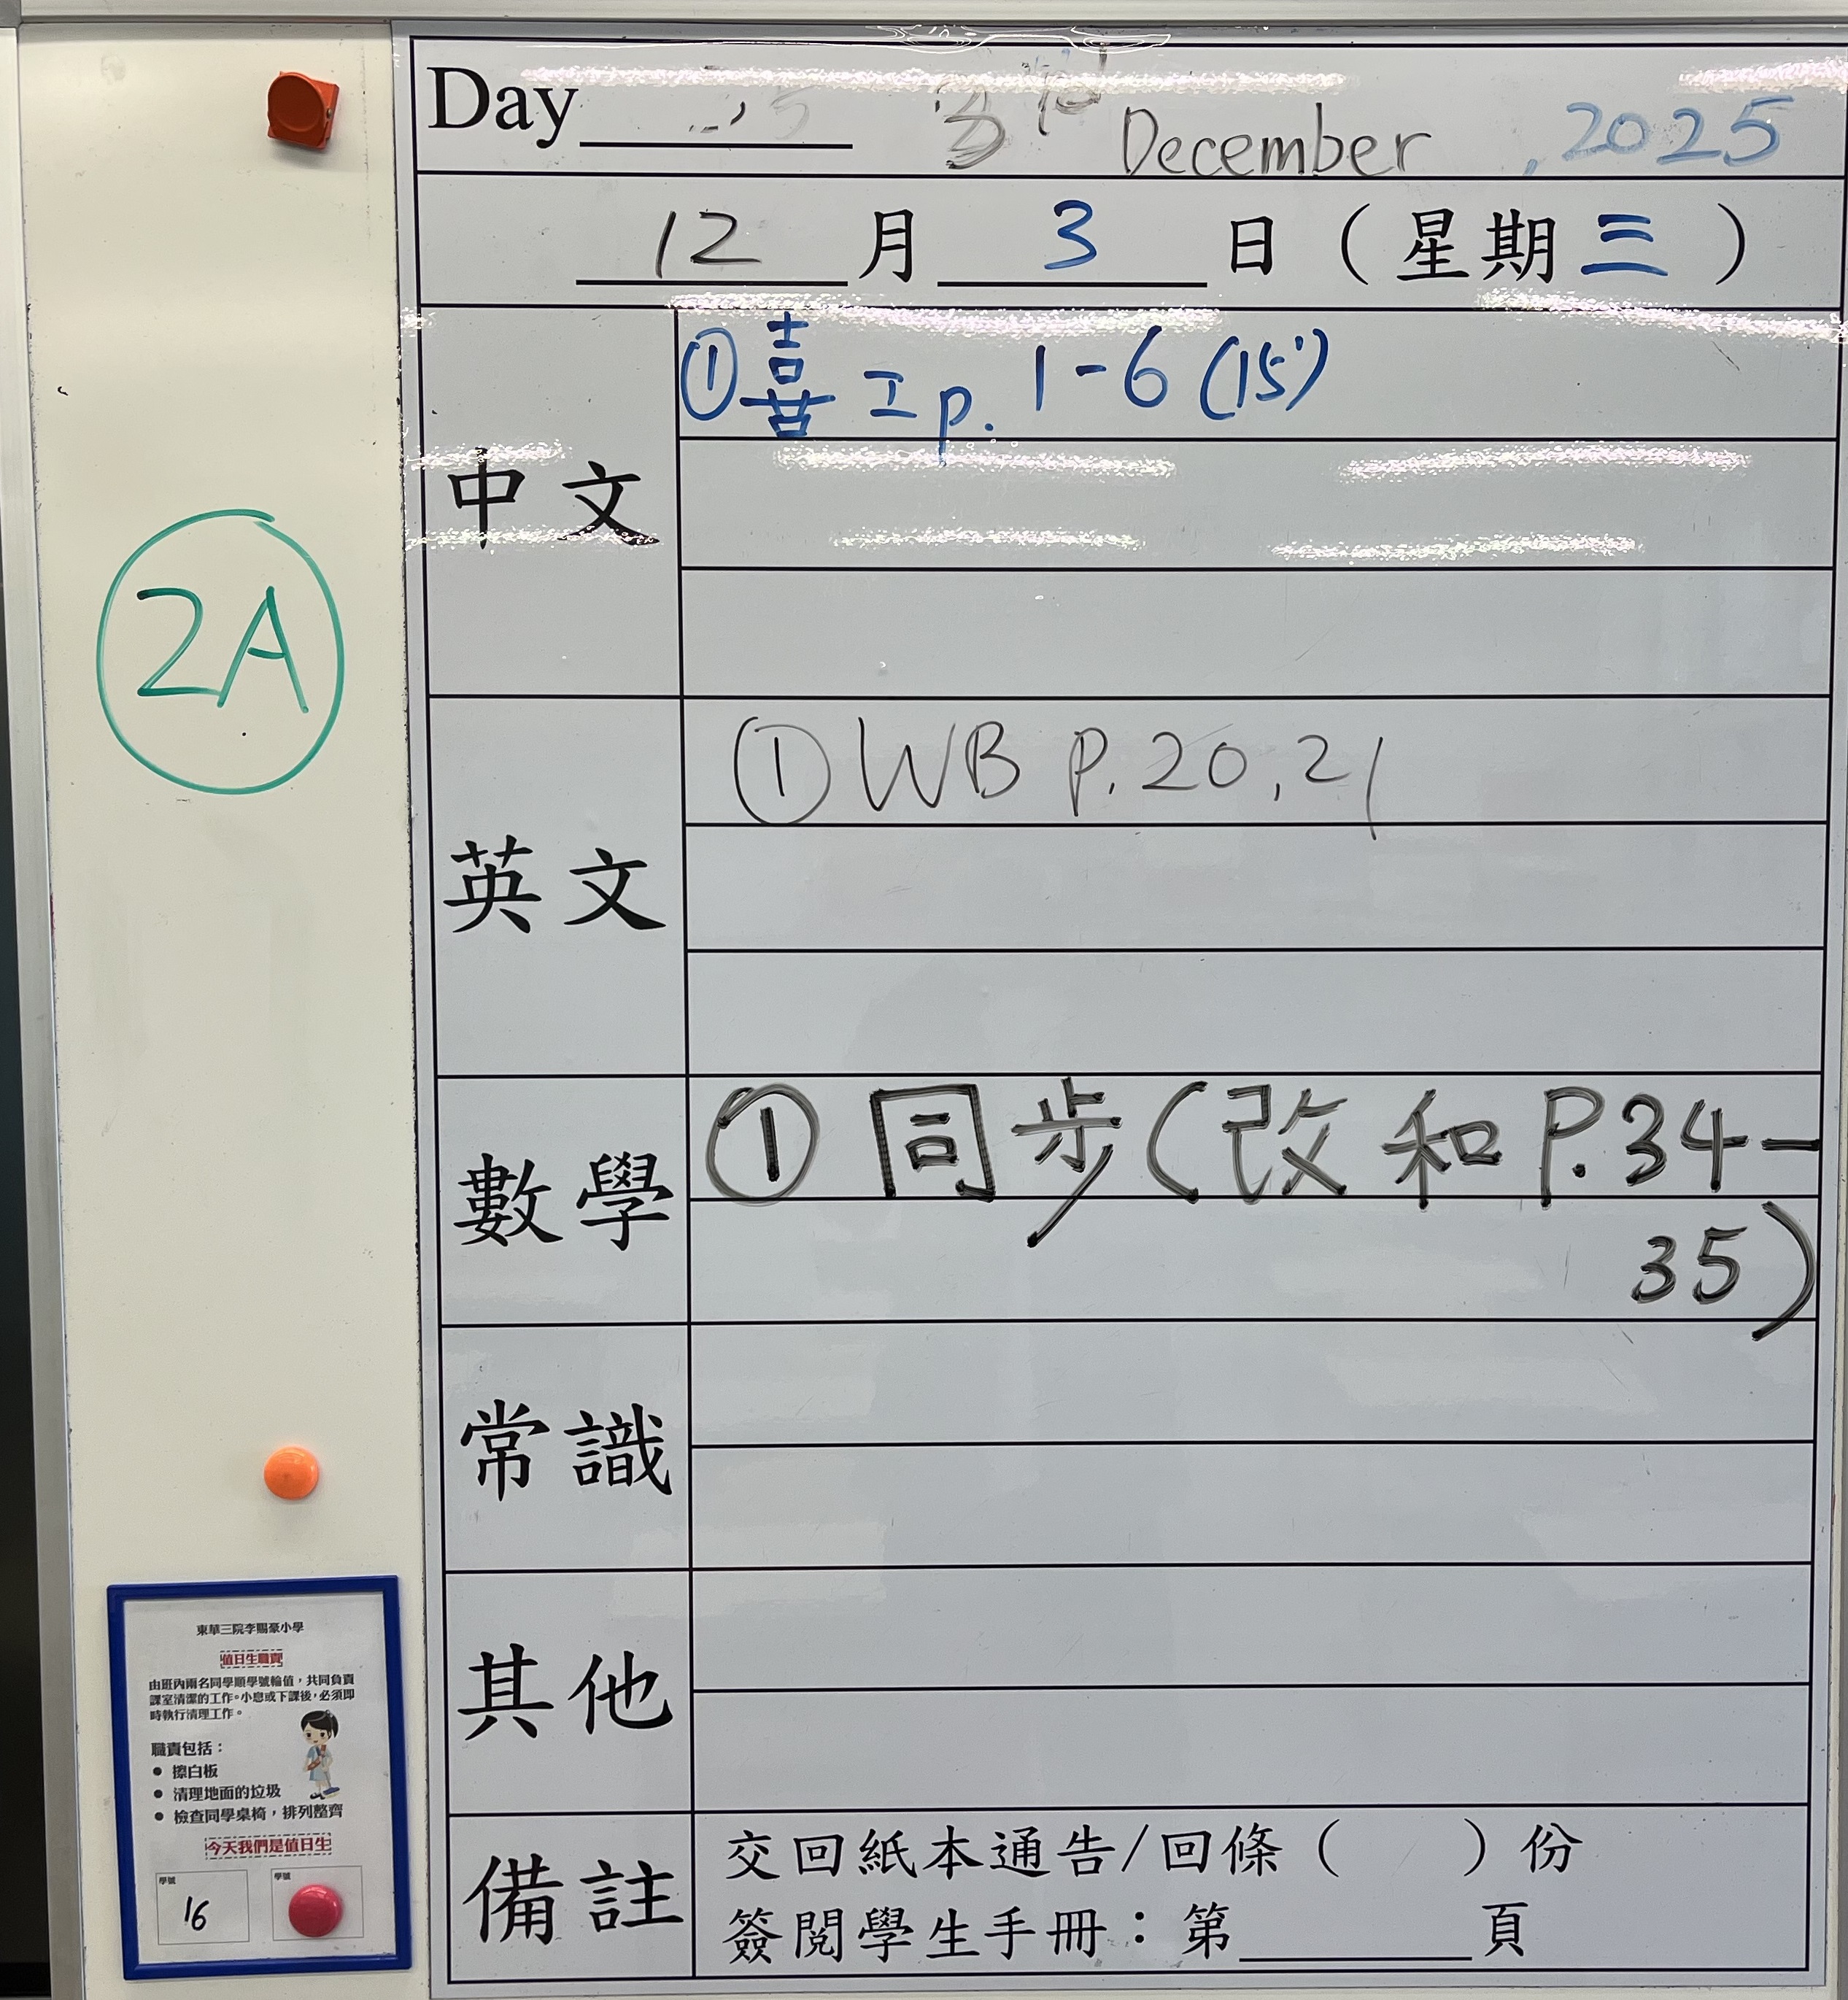 Day 3 December, 2025
12月3日（星期三）
中文
①喜工p. 1-6 (15')
2A
英文
① WB P. 20, 21
數學
① 同步(改和P.34-
35)
常識
其他
備註
交回紙本通告/回條（ ）份
簽閱學生手冊：第 頁
東華三院李賜豪小學
值日生職責
由班內兩名同學順學號輪值，共同負責
課室清潔的工作。小息或下課後，必須即
時執行清理工作。
職責包括：
● 擦白板
● 清理地面的垃圾
● 檢查同學桌椅，排列整齊
今天我們是值日生
學號
16
學號